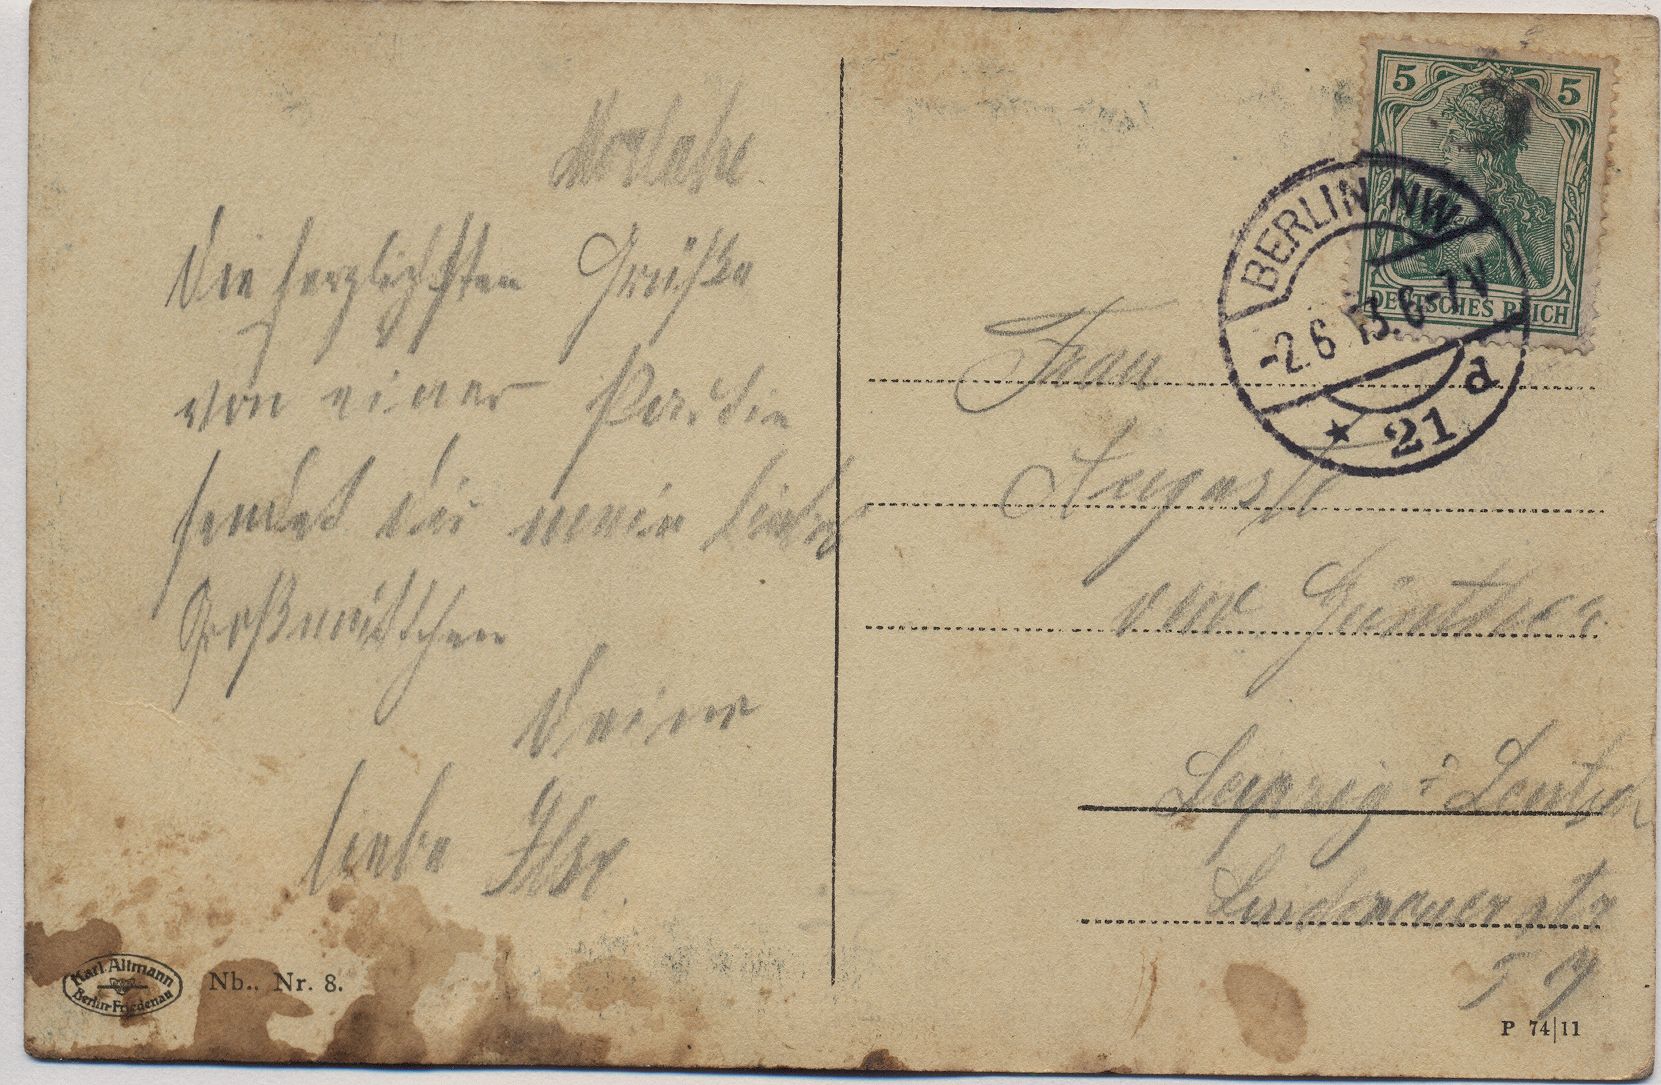 Die herzlichsten Grüße
von einer Partie
sendet dir mein liebes
Großmuttchen
Deine
liebe Ilse.
Karl Altmann
Berlin-Friedenau
Nb.. Nr. 8.
5 5
DEUTSCHES REICH
BERLIN NW
-2.6.13.6-7V
* 21 d
Frau
Auguste
verw Günther
Leipzig - Leutzsch
Lindenauerstr
P 74|11